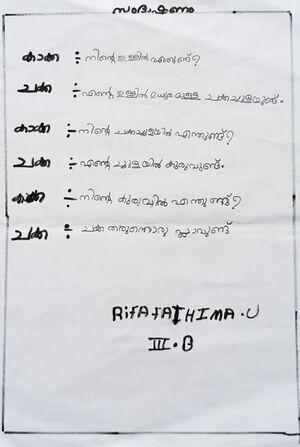 സംഭാഷണം
കാക്ക :- നിന്റെ ഉള്ളിൽ എന്തുണ്ട്?
ചക്ക :- എന്റെ ഉള്ളിൽ മധുരമുള്ള ചക്കചുളയുണ്ട്.
കാക്ക :- നിന്റെ ചക്കചുളയിൽ എന്തുണ്ട്?
ചക്ക :- എന്റെ ചുളയിൽ കുരുവുണ്ട്.
കാക്ക :- നിന്റെ കുരുവിൽ എന്തുണ്ട്?
ചക്ക :- ചക്ക തരുന്നൊരു പ്ലാവുണ്ട്
RIFA FATHIMA.U
III.B